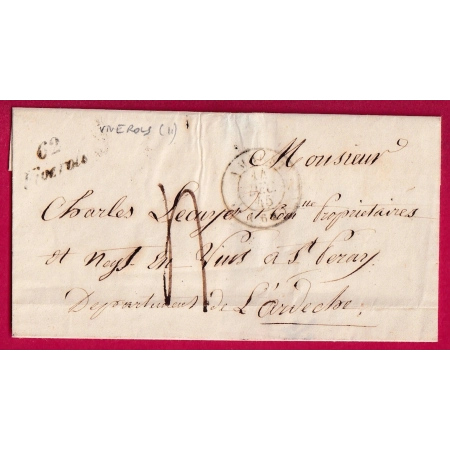 VIVEROLS (11)
62
Viverols
Monsieur
Charles et Comp.nie Propriétaires
et Negt en Vins à St Peray.
Departement de L'ardeche.